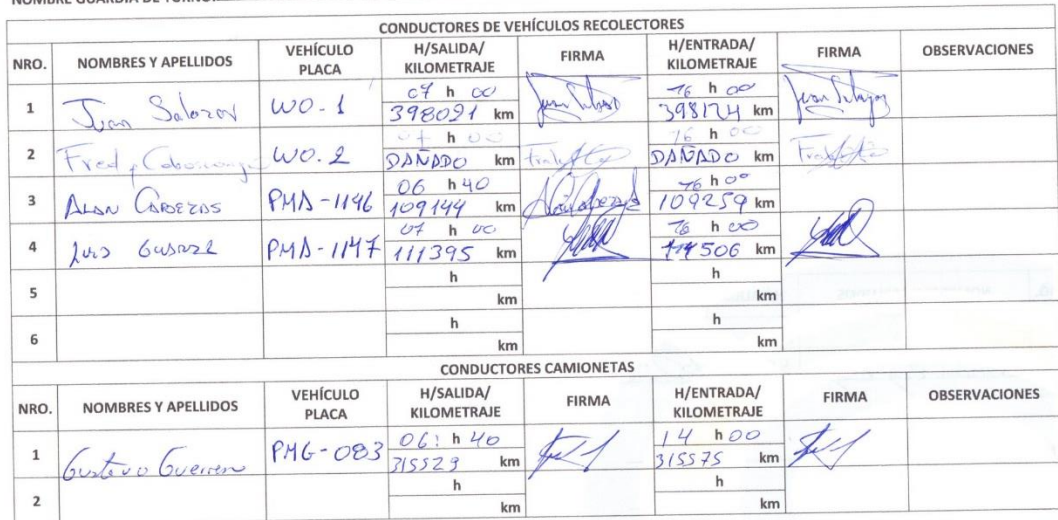 NOMBRE GUARDIA DE TURNO:
CONDUCTORES DE VEHÍCULOS RECOLECTORES
NRO. NOMBRES Y APELLIDOS VEHÍCULO PLACA H/SALIDA/ KILOMETRAJE FIRMA H/ENTRADA/ KILOMETRAJE FIRMA OBSERVACIONES
1 Juan Salazar WO-1 07 h 00 16 h 00
398021 km 398124 km
2 Fredy WO.2 07 h 00 16 h 00
DAÑADO km DAÑADO km
3 ALAN CARDENAS PMA-1146 06 h 40 16 h 00
109144 km 109259 km
4 Luis PMA-1147 07 h 00 16 h 00
111395 km 111506 km
5 h h
km km
6 h h
km km
CONDUCTORES CAMIONETAS
NRO. NOMBRES Y APELLIDOS VEHÍCULO PLACA H/SALIDA/ KILOMETRAJE FIRMA H/ENTRADA/ KILOMETRAJE FIRMA OBSERVACIONES
1 Gustavo Guerrero PMG-083 06: h 40 14 h 00
315529 km 315575 km
2 h h
km km